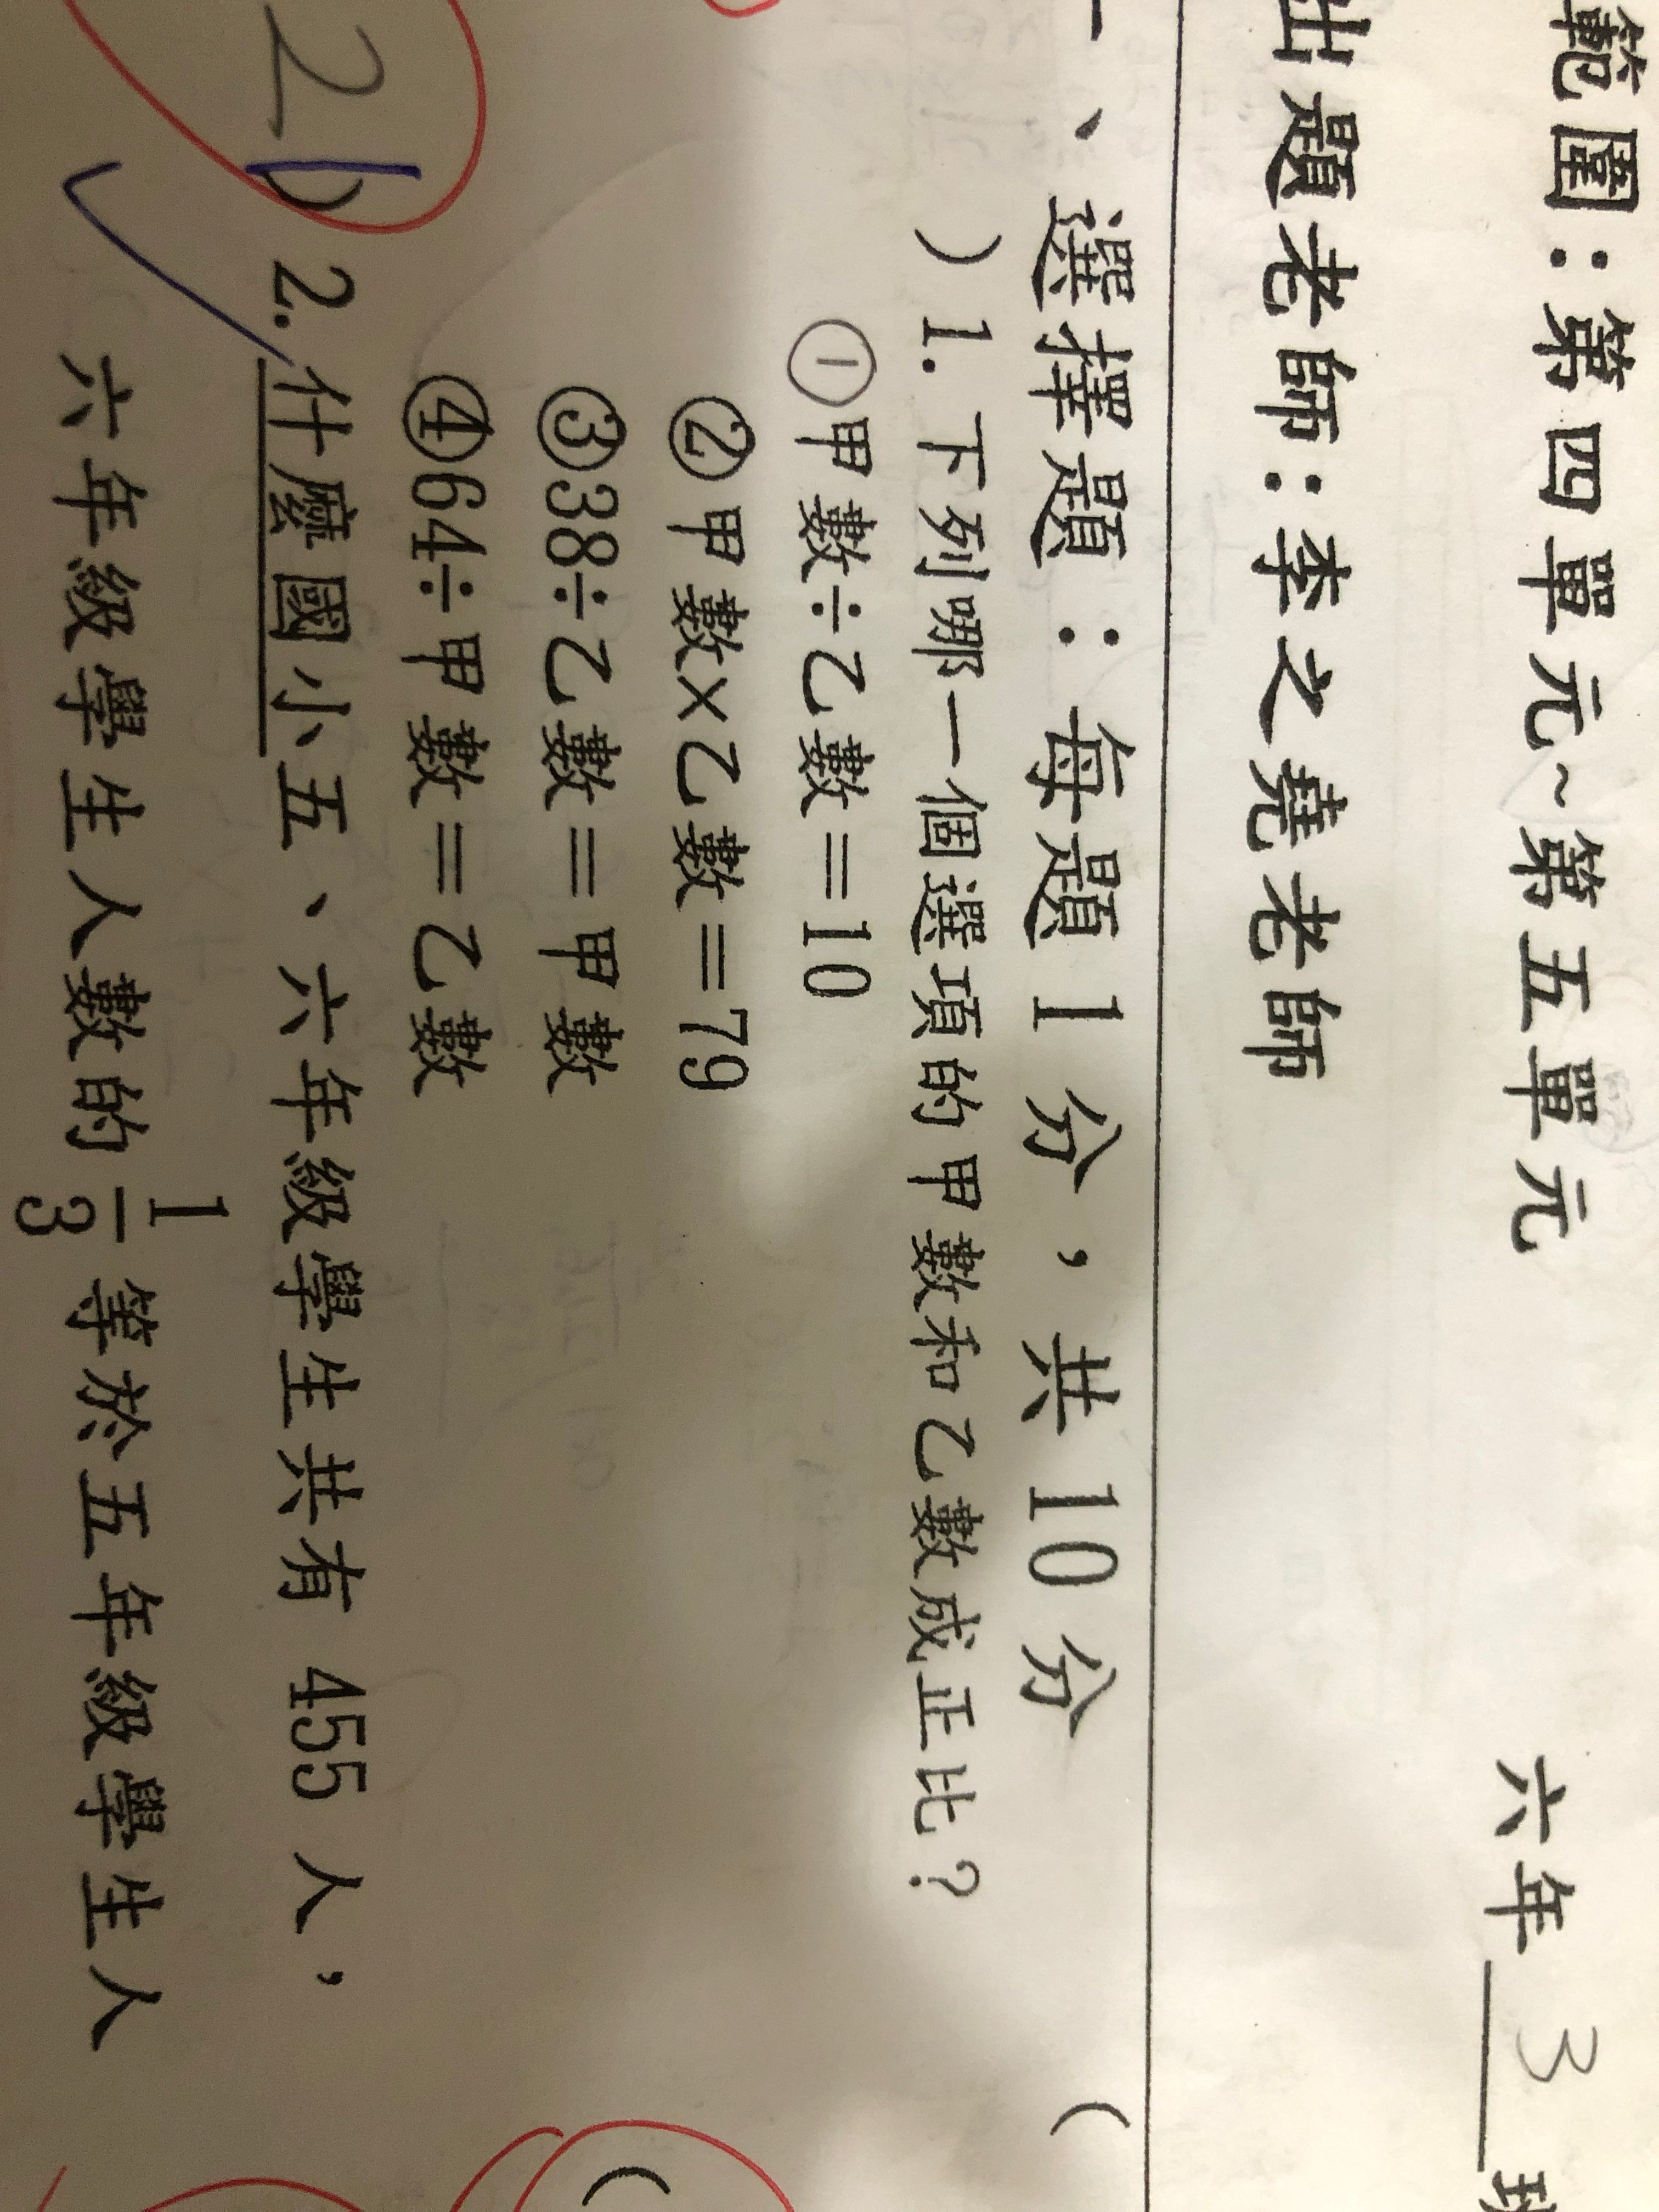 範圍：第四單元~第五單元
六年 3
出題老師：李之堯老師
一、選擇題：每題1分，共10分
( 
)1.下列哪一個選項的甲數和乙數成正比？
①甲數÷乙數＝10
②甲數×乙數＝79
③38÷乙數＝甲數
④64÷甲數＝乙數
(
2 )2.什麼國小五、六年級學生共有 455 人，
六年級學生人數的 1/3 等於五年級學生人